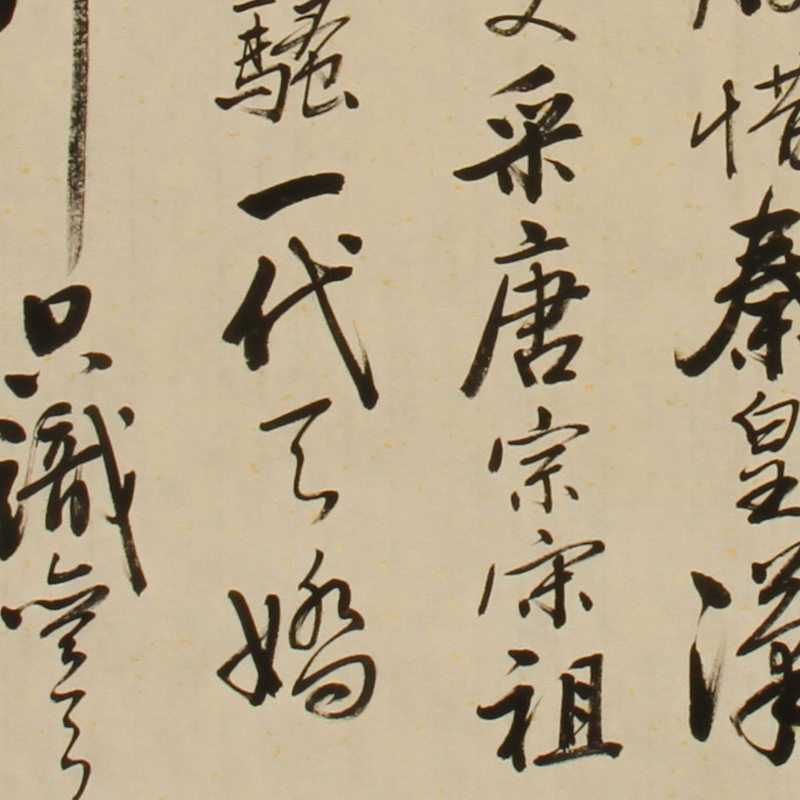 惜秦皇漢
采唐宗宋祖
騷一代天嬌
只識弯弓